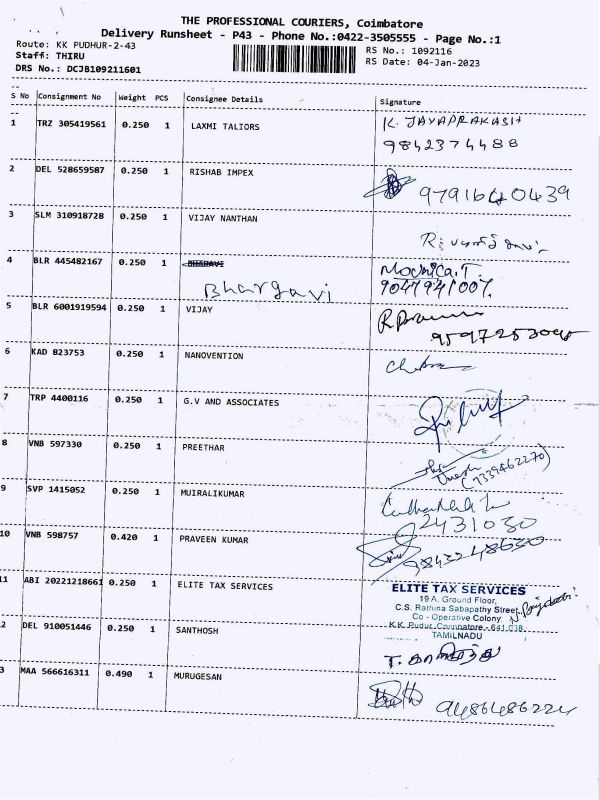 THE PROFESSIONAL COURIERS, Coimbatore
Delivery Runsheet - P43 - Phone No.:0422-3505555 - Page No.:1
Route: KK PUDHUR-2-43 RS No.: 1092116
Staff: THIRU RS Date: 04-Jan-2023
DRS No.: DCJB109211601
S No Consignment No Weight PCS Consignee Details Signature
1 TRZ 305419561 0.250 1 LAXMI TALIORS K. JAYAPRAKASH
9842374488
2 DEL 528659587 0.250 1 RISHAB IMPEX 9791640439
3 SLM 310918728 0.250 1 VIJAY NANTHAN
4 BLR 445482167 0.250 1 BHARAVI Monica.T.
Bhargavi 9047941007.
5 BLR 6001919594 0.250 1 VIJAY
6 KAD 823753 0.250 1 NANOVENTION
7 TRP 4400116 0.250 1 G.V AND ASSOCIATES
8 VNB 597330 0.250 1 PREETHAR
(7339462270)
9 SVP 1415052 0.250 1 MUIRALIKUMAR
2431030
10 VNB 598757 0.420 1 PRAVEEN KUMAR 9843248630
11 ABI 20221218661 0.250 1 ELITE TAX SERVICES ELITE TAX SERVICES
19 A, Ground Floor,
C.S. Rathina Sabapathy Street,
Co - Operative Colony
K.K. Pudur, Coimbatore - 641 038.
TAMILNADU
2 DEL 910051446 0.250 1 SANTHOSH
3 MAA 566616311 0.490 1 MURUGESAN 9486486224